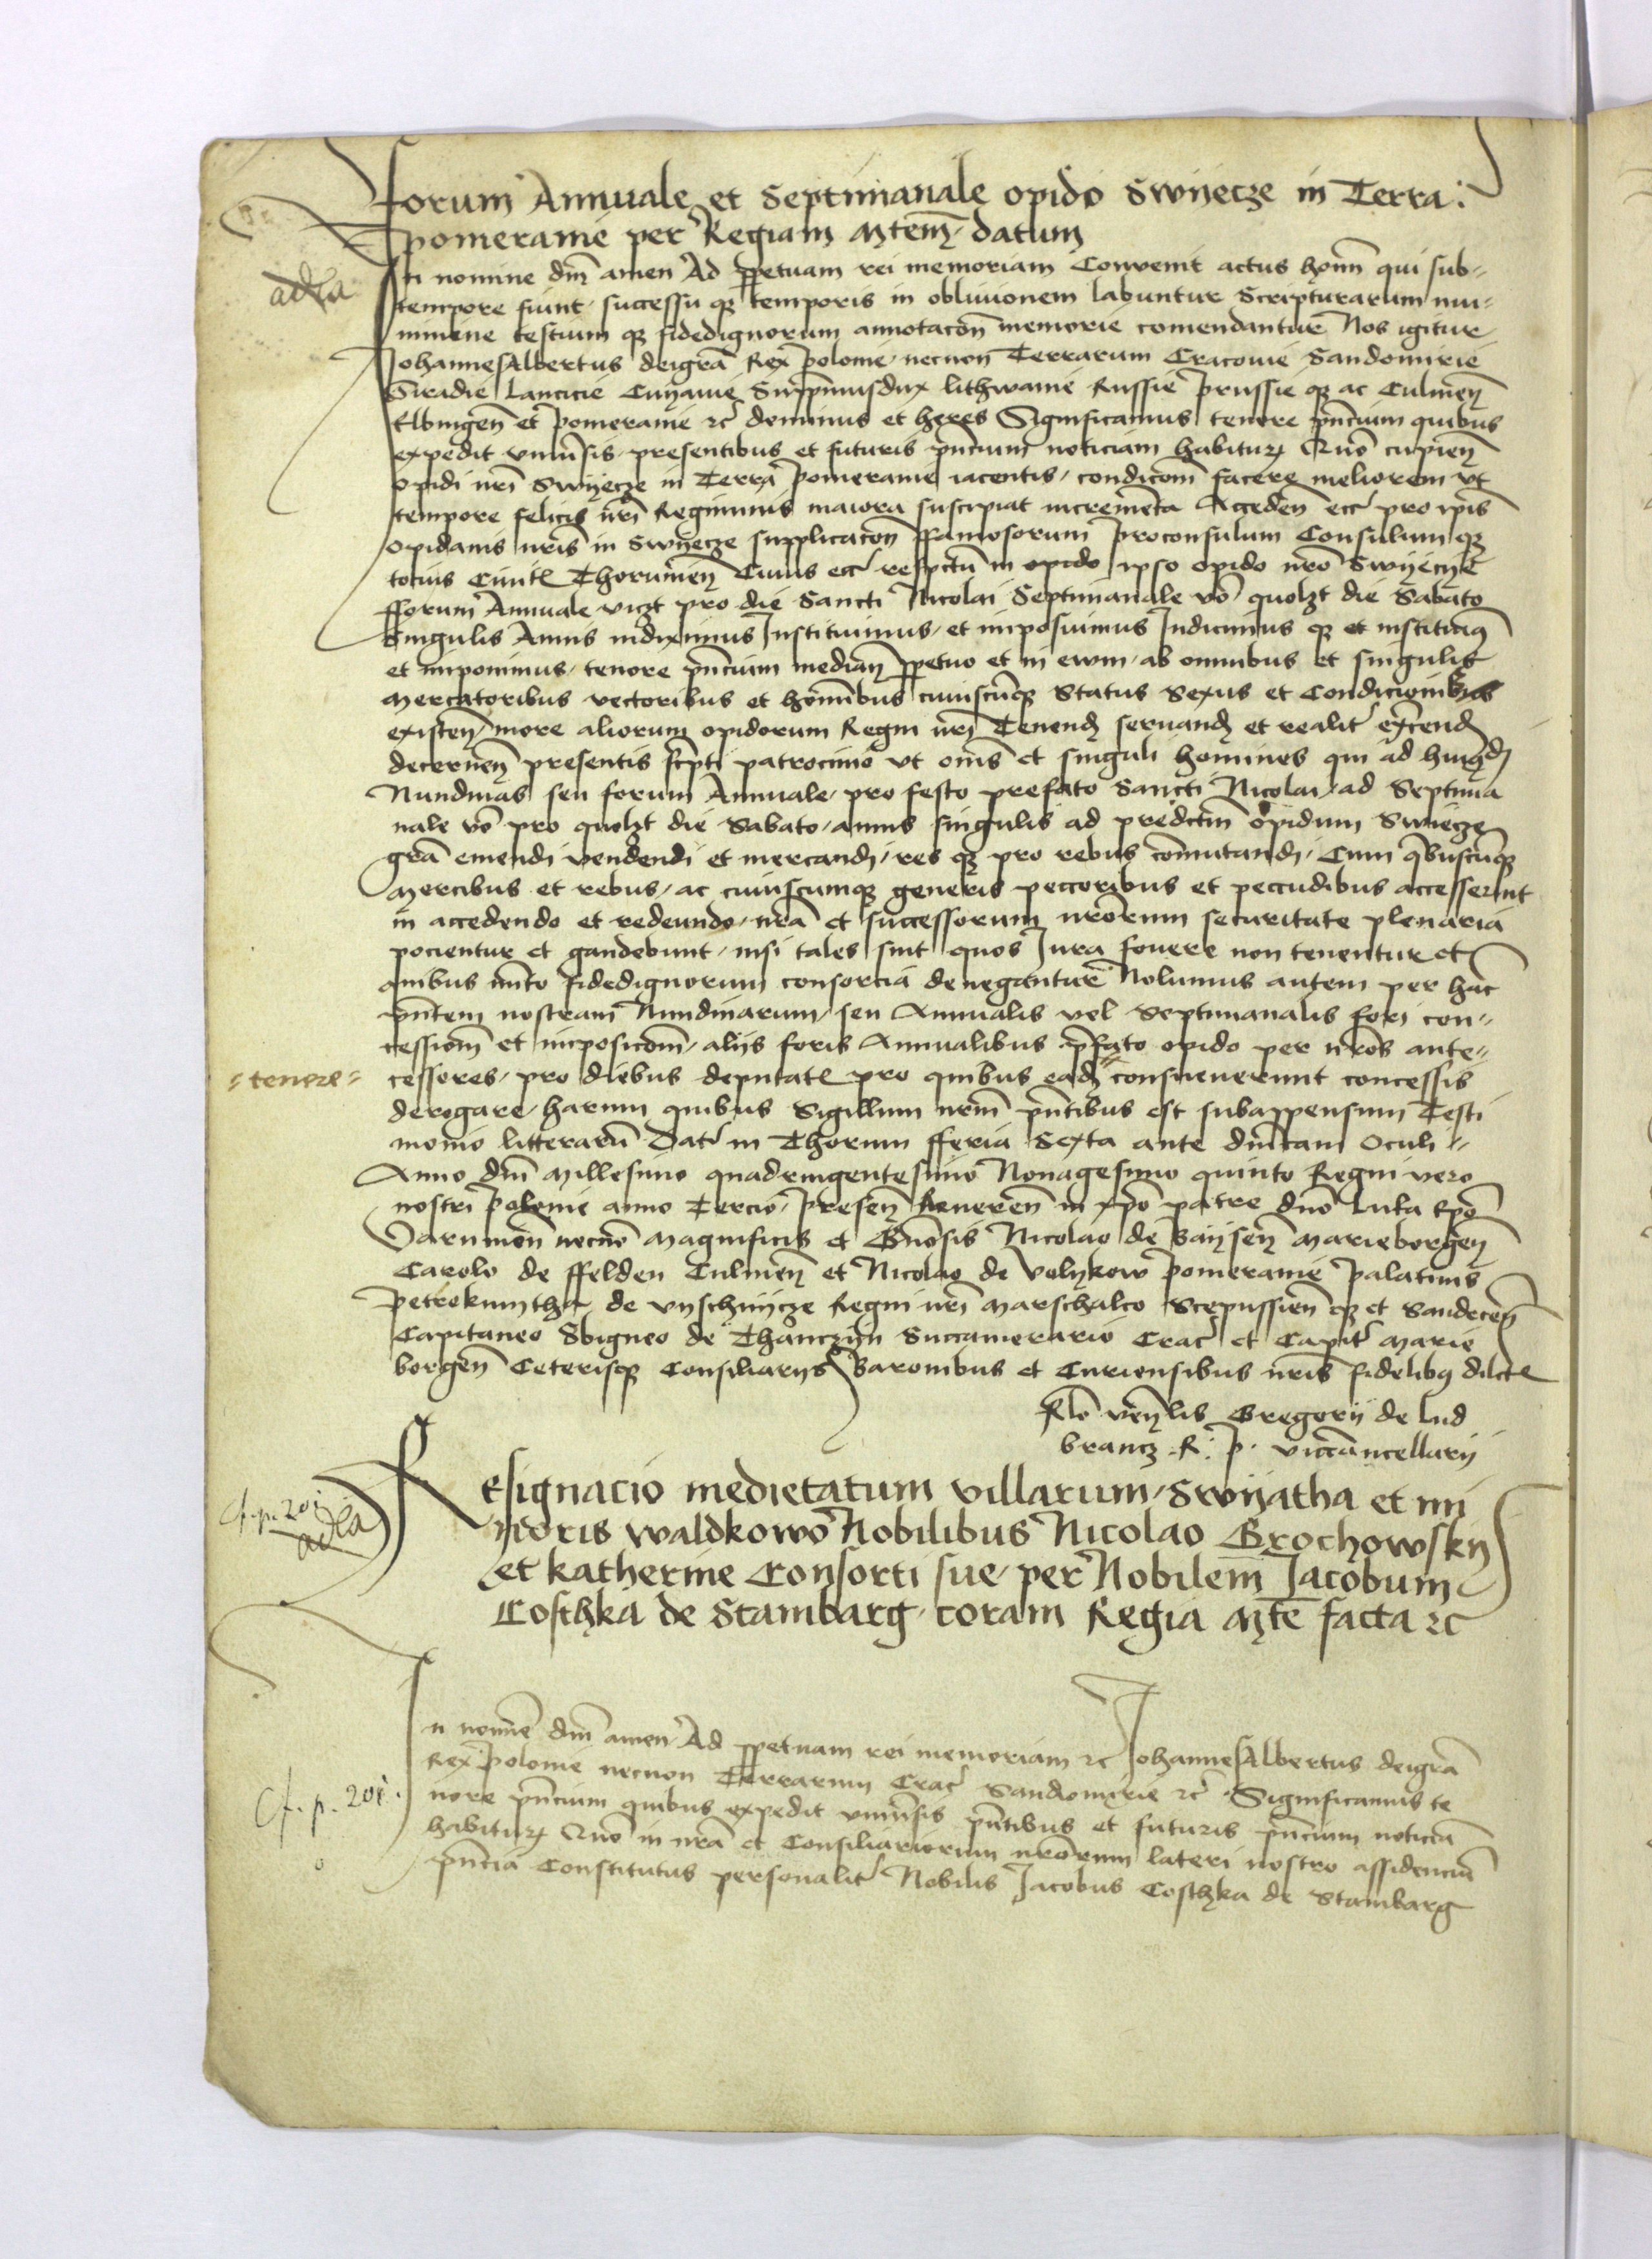 Forum Annuale et Septimanale opido Swyecze in Terra
pomeranie per Regiam Mtem datum
adla
In nomine dni amen Ad ppetuam rei memoriam Convenit actus honn qui sub
tempore fiunt successu qz temporis in oblivionem labuntur Scripturarum mu
nimene testium qz fidedignorum annotacon memorie comendantur Nos igitur
Johannes Albertus deigra Rex polonie necnon Terrarum Cracovie Sandomirie
Siradie Lancicie Cuyavie Suppmusdux lithwanie Russie prussie qz ac Culmen
Elbingen et pomeranie zc dominus et heres Significamus tenore pncium quibus
expedit univsis presentibus et futuris pncium noticiam habitur Quo cupien
opidi nri Swyecze in Terra pomeranie iacentis condicom facere meliorem ut
tempore felicis nri Regiminis maiora suscipiat incrementa Acceden ecc pro ipis
opidanis nris in Swyecze supplicacon ffamosorum proconsulum Consulum qz
tocius Civit Thorunien Cuius ecc respctu in opido ipso opido nro Swyecze
fforum Annuale viczt pro die Sancti Nicolai Septimanale vo quolzt die Sabato
Singulis Annis indiximus Instituimus et imposuimus Indicimus qz et instituim9
et imponimus tenore pncium median ppetuo et in ewm ab omnibus et singulis
mercatoribus vectoribus et homnibus cuiuscunqz Status Sexus et Condicionibus
existen more aliorum opidorum Regni nri Tenend servand et realit excend
decernen presentis scpti patrocinio ut oms et singuli homines qui ad huiusd
Nundinas seu forum Annuale pro festo prefato Sancti Nicolai ad Septima
nale vo pro quolzt die Sabato annis singulis ad predctm opidum Swiecze
gra emendi vendendi et mercandi res qz pro rebus comutandi Cum qbuscunqz
mercibus et rebus ac cuiuscumqz generis peccoribus et peccudibus accesserint
in accedendo et redeundo nra et successorum nrorum securitate plenaria
pocientur et gaudebunt nisi tales sint quos Jura fovere non tenentur et
quibus mto fidedignorum consorcia denegantur Nolumus autem per hac
pntem nostram Nundinarum seu Annualis vel Septimanalis fori con
cessiom et imposicom alijs foris Annualibus pfato opido per nros ante
=tenere= cessores pro diebus deputat pro quibus eadz consueverunt concessis
derogare harum quibus Sigillum nrm pntibus est subappensum Testi
monio litterarum Dat in Thorun fferia Sexta ante dnicam Oculi
Anno dni Millesimo quadringentesimo Nonagesimo quinto Regni vero
nostri polonie anno Tercio presen Reveren in xpo patre dno Luca Epo
Varmien necno Magnificis et Gnosis Nicolao de Baysen Marieborgen
Carolo de ffelden Culmen et Nicolao de Volykow pomeranie palatinis
Petrokmytha de vyschnycze Regni nri Marschalco Scepussien qz et Sandecen
Capitaneo Sbigneo de Thanczyn Succamerario Crac et Capit Marie
borgen Ceterisqz Consiliarijs Baronibus et Curiensibus nris fidelib9 dilct
Rlo venlis Gregorij de Lud
brancz R. p. vicecancellarij
cf. p. 201
adla
Resignacio medietatum villarum Swyatha et mi
noris Waldkowo Nobilibus Nicolao Grochowsky
et katherine Consorti sue per Nobilem Jacobum
Costhka de Stambarg coram Regia Mte facta zc
In nomine dni amen Ad ppetuam rei memoriam zc Johannes Albertus deigra
Rex Polonie necnon Terrarum Crac Sandomirie zc Significamus te
cf. p. 201.
nore pncium quibus expedit univsis pntibus et futuris pncium noticia
habitur Quo in nra et Consiliariorum nrorum lateri nostro assidenciu
pncia Constitutus personalit Nobilis Jacobus Costhka de Stambarg